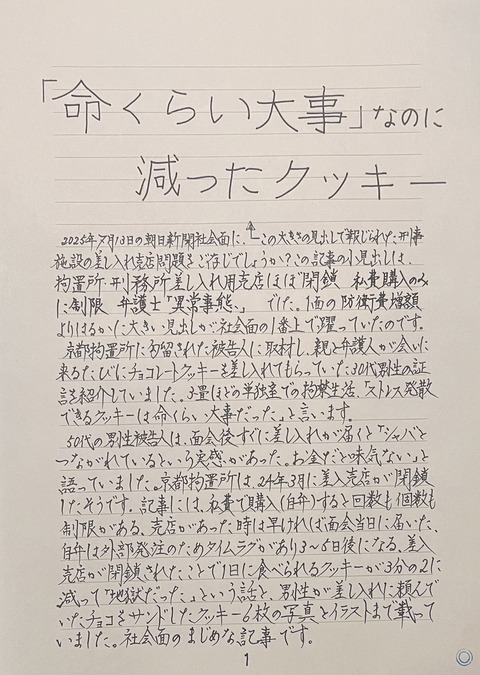 「命くらい大事」なのに
減ったクッキー
2025年7月13日の朝日新聞社会面に、この大きさの見出しで報じられた刑事
施設の差し入れ売店問題をご存じでしょうか?この記事の小見出しは、
拘置所・刑務所差し入れ用売店ほぼ閉鎖 私費購入のみ
に制限 弁護士「異常事態」 でした。1面の防衛費増額
よりはるかに大きい見出しが社会面の1番上で躍っていたのです。
京都拘置所に勾留された被告人に取材し、親と弁護人が会いに
来るたびにチョコレートクッキーを差し入れてもらっていた30代男性の証
言を紹介していました。3畳ほどの単独室での拘禁生活、「ストレス発散
できるクッキーは命くらい大事だった」と言います。
50代の男性被告人は、面会後すぐに差し入れが届くと「シャバと
つながれているという実感があった。お金だと味気ない」と
語っていました。京都拘置所は、24年3月に差入売店が閉鎖
したそうです。記事には、私費で購入(自弁)すると回数も個数も
制限がある、売店があった時は早ければ面会当日に届いた、
自弁は外部発注のためタイムラグがあり3~5日後になる、差入
売店が閉鎖されたことで1日に食べられるクッキーが3分の2に
減って「地獄だった」という話と、男性が差し入れに頼んで
いたチョコをサンドしたクッキー6枚の写真とイラストまで載って
いました。社会面のまじめな記事です。
1